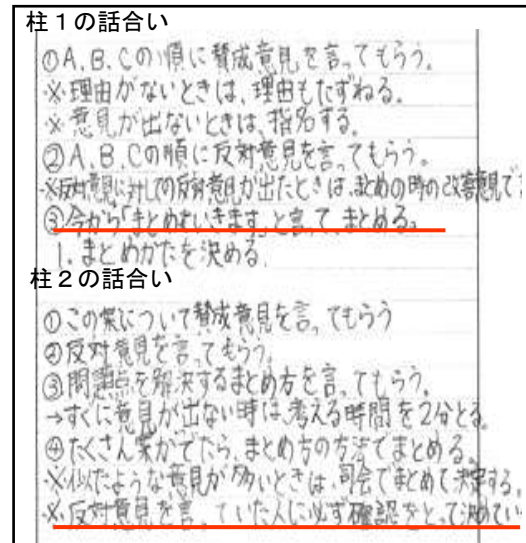 柱１の話合い
①A、B、Cの順に賛成意見を言ってもらう。
※理由がないときは、理由もたずねる。
※意見が出ないときは、指名する。
②A、B、Cの順に反対意見を言ってもらう。
※反対意見に対しての反対意見が出たときは、まとめの時の改善意見で
③今から「まとめをいきます」と言って、まとめる。
1、まとめかたを決める。
柱２の話合い
①この案について賛成意見を言ってもらう
②反対意見を言ってもらう。
③問題点を解決するまとめ方を言ってもらう。
→すぐに意見が出ない時は、考える時間を2分とる
④たくさん案がでたら、まとめ方の方法でまとめる。
※似たような意見が多いときは、司会でまとめて決定する。
※反対意見を言っていた人に必ず確認をとって決めてい